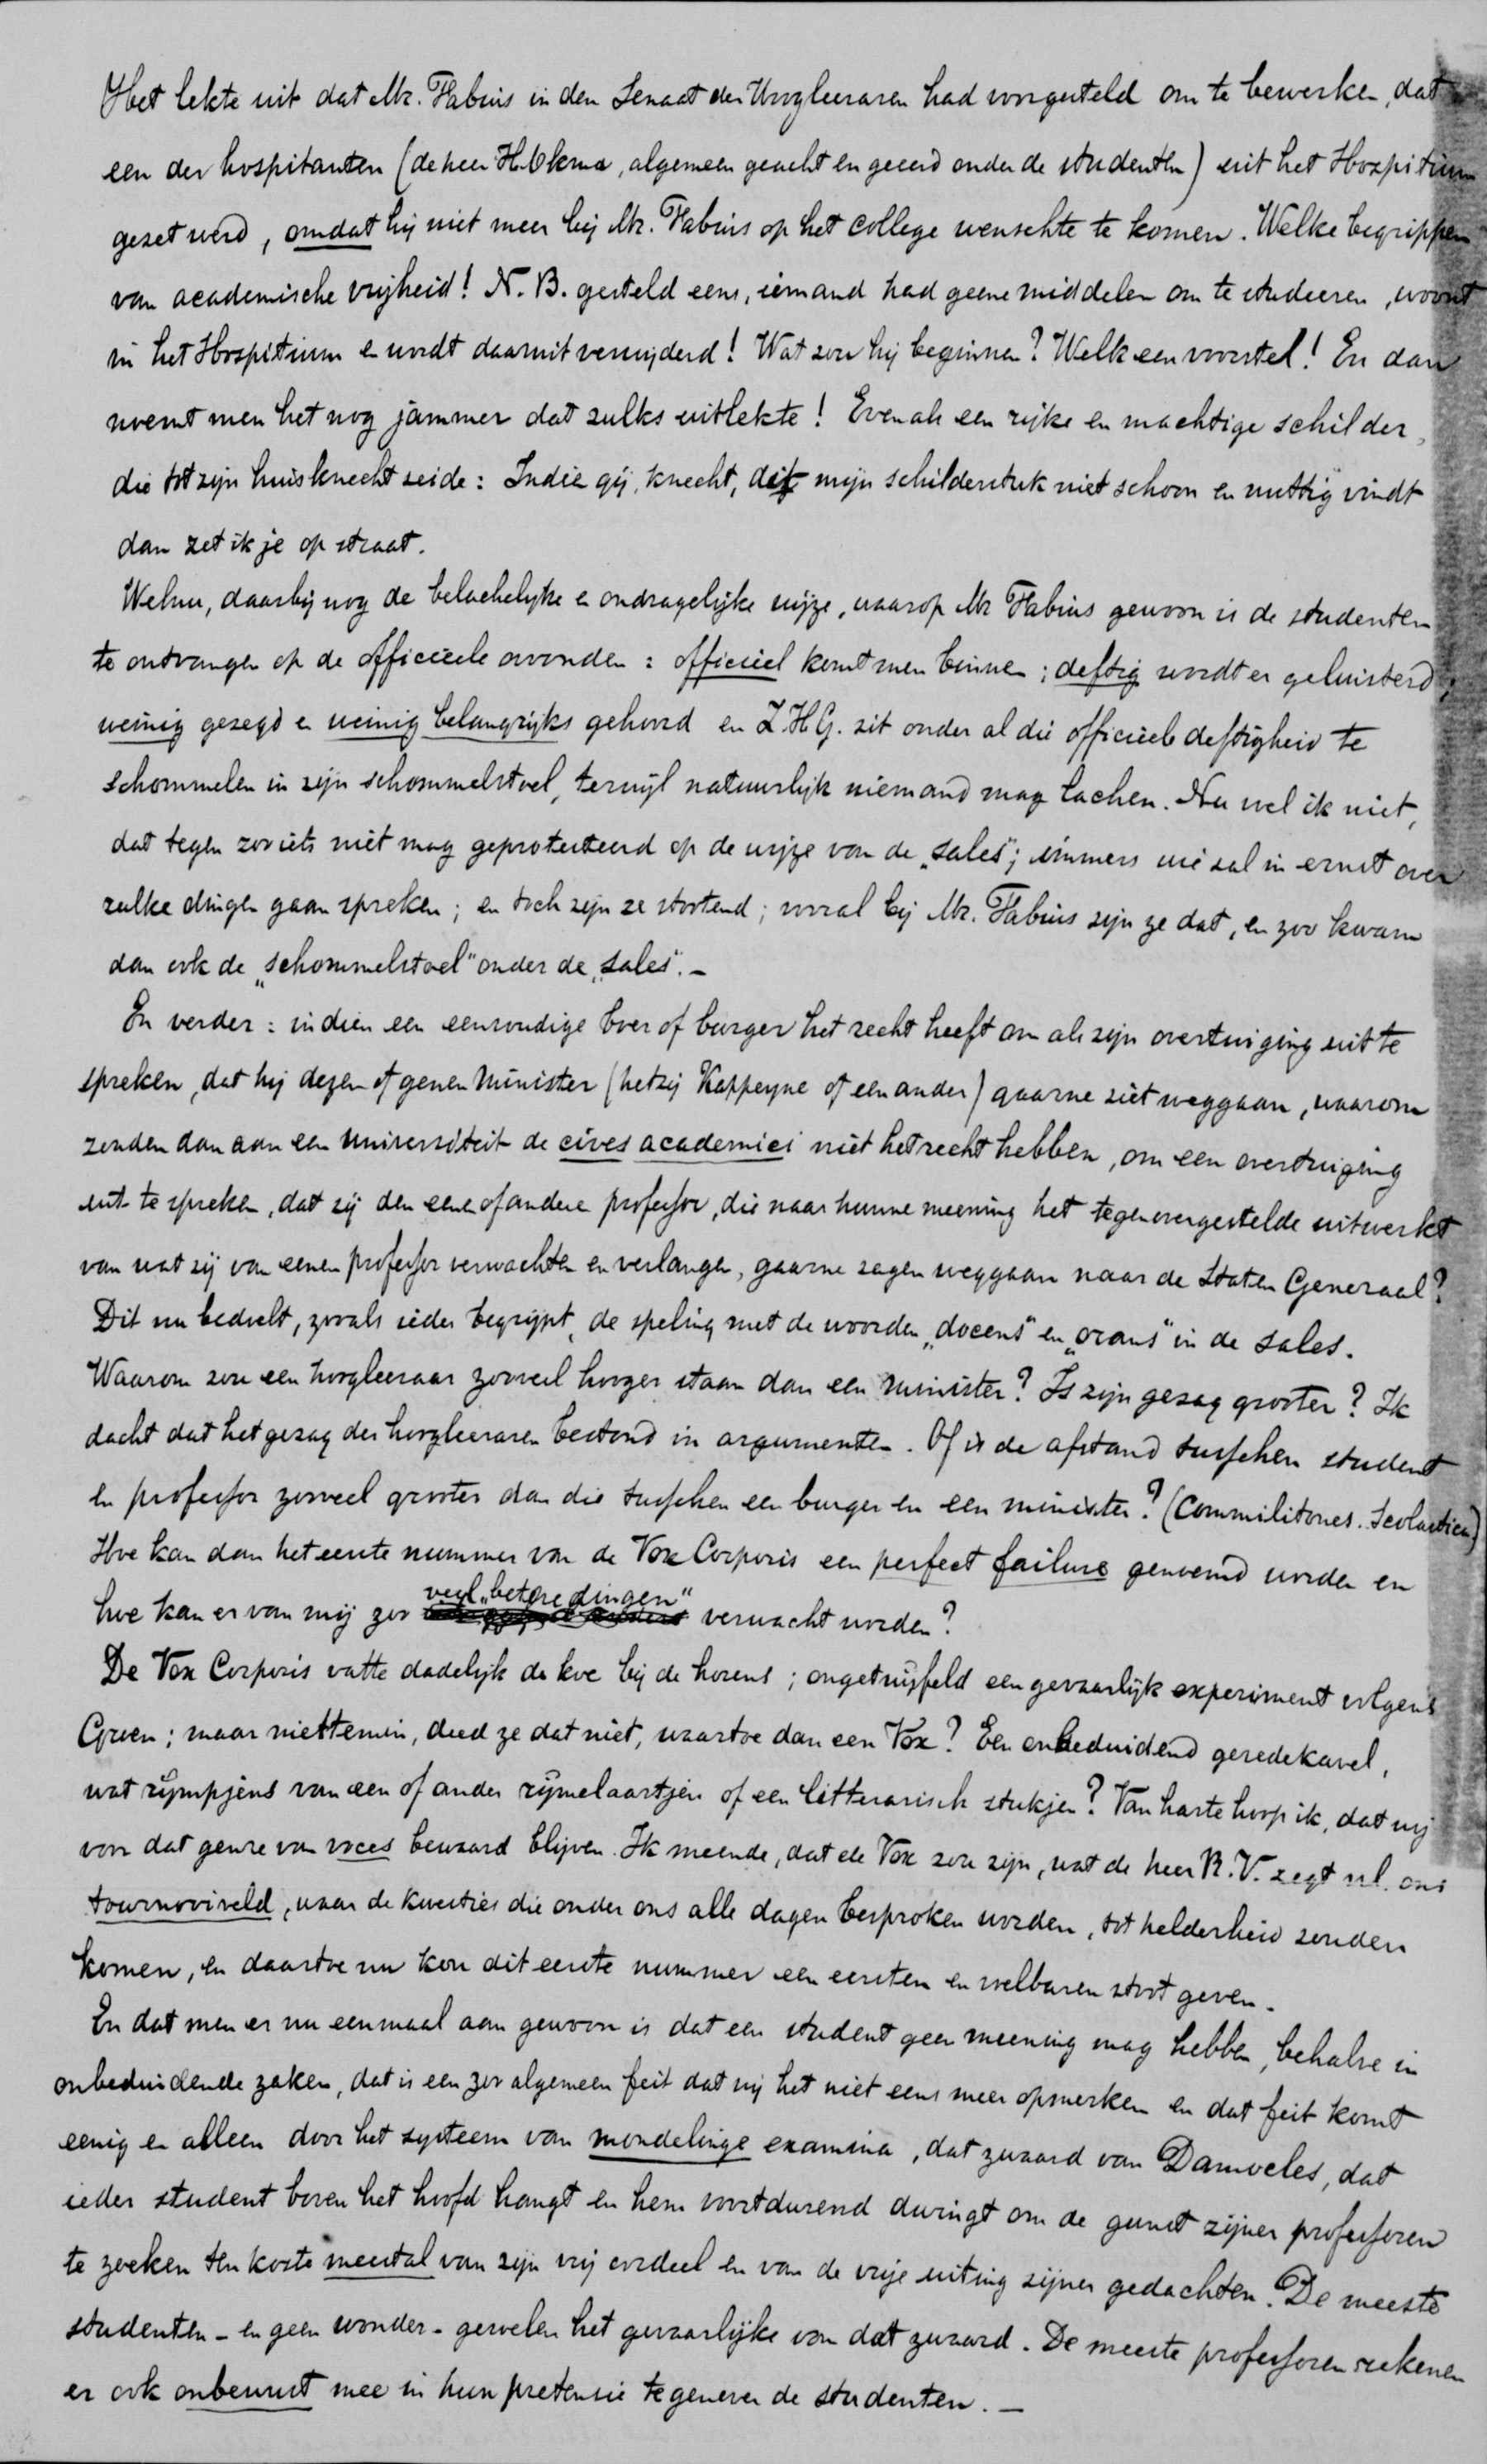 Het lekte uit dat Mr. Fabius in den Senaat der Hoogleeraren had voorgesteld om te bewerken, dat
een der hospitanten (de heer Hoekma, algemeen geacht en geeerd onder de studenten) uit het Hospitium
gezet werd, omdat hij niet meer bij Mr. Fabius op het college wenschte te komen. Welke begrippen
van academische vrijheid! N.B. gesteld eens, iemand had geene middelen om te studeeren, woont
in het Hospitium en wordt daaruit verwijderd! Wat zou hij beginnen? Welk een voorstel! En dan
noemt men het nog jammer dat zulks uitlekte! Even als een rijke en machtige schilder,
die tot zijn huisknecht zeide: Indien gij, knecht, dit mijn schilderstuk niet schoon en nuttig vindt
dan zet ik je op straat.
Welnu, daarbij nog de belachelijke en ondragelijke wijze, waarop Mr Fabius gewoon is de studenten
te ontvangen op de officieele avonden: officieel komt men binnen; deftig wordt er geluisterd;
weinig gezegd en weinig belangrijks gehoord en Z.H.G. zit onder al die officieele deftigheid te
schommelen in zijn schommelstoel, terwijl natuurlijk niemand mag lachen. Nu wel ik niet,
dat tegen zoo iets niet mag geprotesteerd op de wijze van de „sales"; immers wie zal in ernst over
zulke dingen gaan spreken; en toch zijn ze stootend; vooral bij Mr. Fabius zijn ze dat, en zoo kwam
dan ook de „schommelstoel" onder de „sales". –
En verder: indien een eenvoudige boer of burger het recht heeft om als zijn overtuiging uit te
spreken, dat hij dezen of genen Minister (hetzij Kappeyne of een ander) gaarne ziet weggaan, waarom
zouden dan aan een Universiteit de cives academici niet het recht hebben, om een overtuiging
uit te spreken, dat zij den eenen of andere professor, die naar hunne meening het tegenovergestelde uitwerkt
van wat zij van eenen professor verwachten en verlangen, gaarne zagen weggaan naar de Staten Generaal?
Dit nu bedoelt, zooals ieder begrijpt, de speling met de woorden „docens" en „orans" in de sales.
Waarom zou een hoogleeraar zooveel hooger staan dan een Minister? Is zijn gezag grooter? Ik
dacht dat het gezag der hoogleeraren bestond in argumenten. Of is de afstand tusschen student
en professor zooveel grooter dan die tusschen een burger en een minister? (Commilitones. Scolastica)
Hoe kan dan het eerste nummer van de Vox Corporis een perfect failure genoemd worden en
hoe kan er van mij zoo veel „betere dingen" verwacht worden?
De Vox Corporis vatte dadelijk de koe bij de horens; ongetwijfeld een gevaarlijk experiment volgens
Groen; maar niettemin, deed ze dat niet, waartoe dan een Vox? Een onbeduidend geredekavel,
wat rijmpjens van een of ander rijmelaartjen of een litterarisch stukjen? Van harte hoop ik, dat wij
voor dat genre van voces bewaard blijven. Ik meende, dat de Vox zou zijn, wat de heer R.V. zegt nl. ons
tournooiveld, waar de kwesties die onder ons alle dagen besproken worden, tot helderheid zouden
komen, en daartoe nu kon dit eerste nummer een eersten en voelbaren stoot geven.
En dat men er nu eenmaal aan gewoon is dat een student geen meening mag hebben, behalve in
onbeduidende zaken, dat is een zoo algemeen feit dat wij het niet eens meer opmerken en dat feit komt
eenig en alleen door het systeem van mondelinge examina, dat zwaard van Damocles, dat
ieder student boven het hoofd hangt en hem voortdurend dwingt om de gunst zijner professoren
te zoeken ten koste meestal van zijn vrij oordeel en van de vrije uiting zijner gedachten. De meeste
studenten – en geen wonder – gevoelen het gevaarlijke van dat zwaard. De meeste professoren rekenen
er ook onbewust mee in hun pretensie tegenover de studenten. –